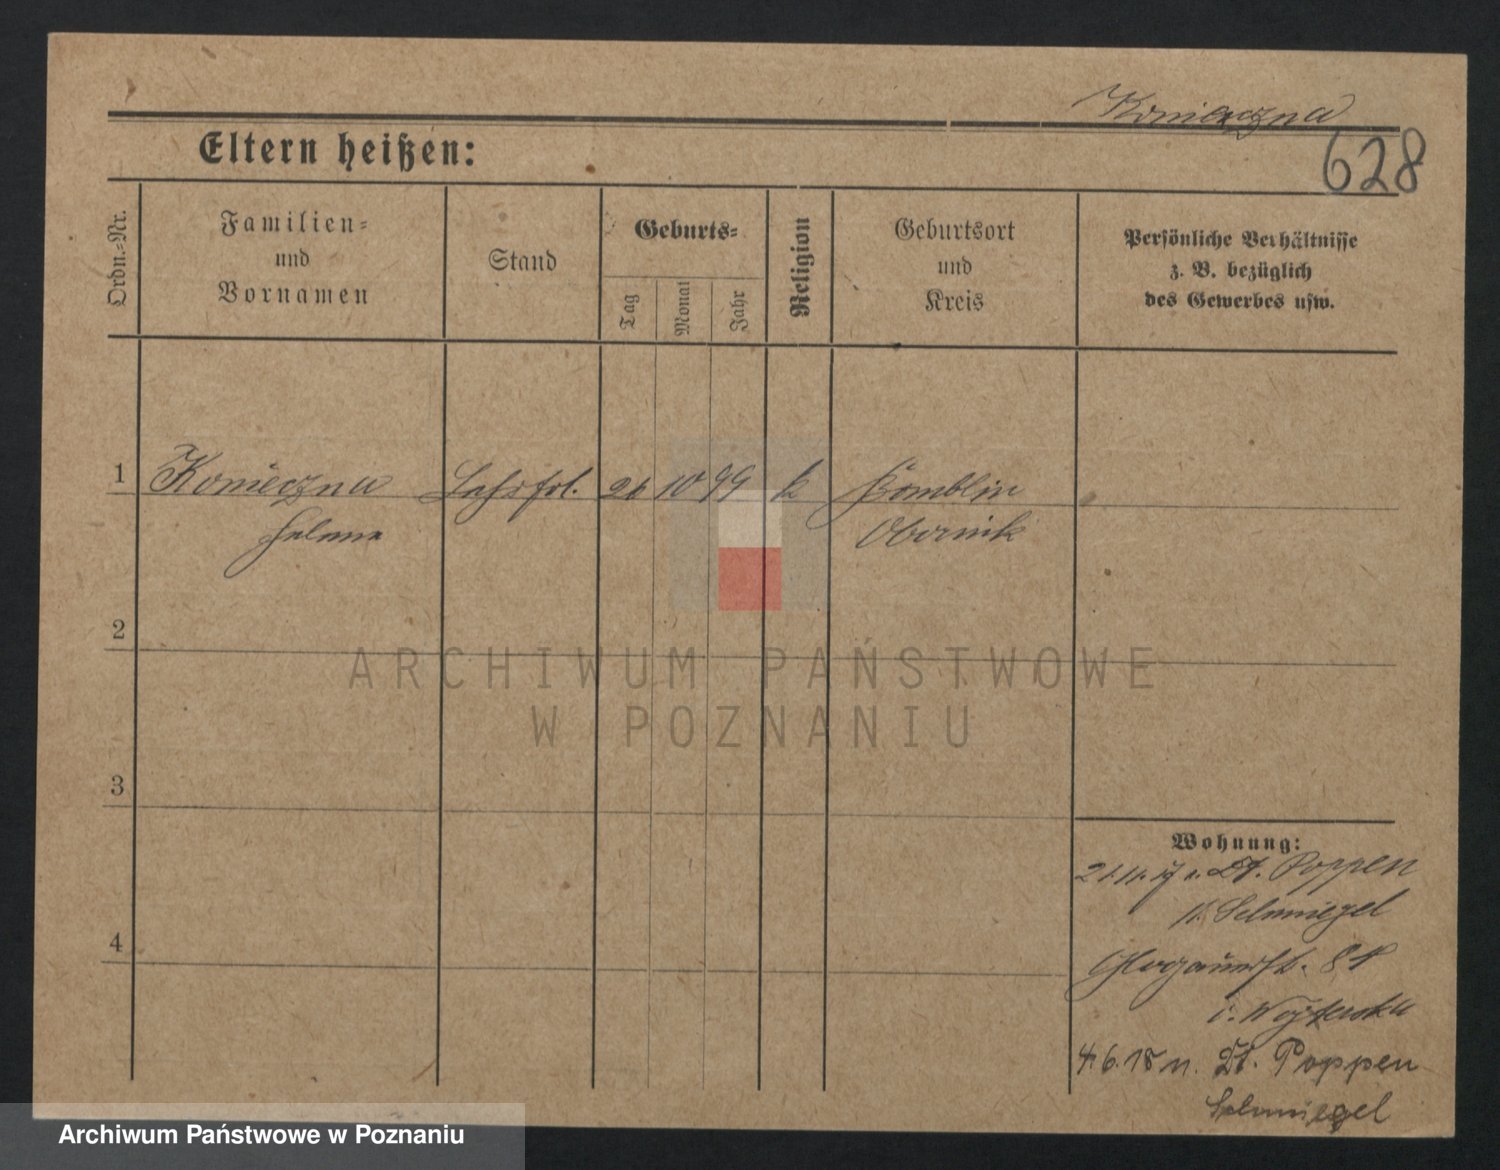 Konieczna
628
Eltern heißen:
Ordn.=Nr.
Familien=
und
Vornamen
Stand
Geburts=
Tag
Monat
Jahr
Religion
Geburtsort
und
Kreis
Persönliche Verhältnisse
z. B. bezüglich
des Gewerbes usw.
1
Konieczna 26 10 99 k
Helene
Obornik
2
3
4
ARCHIWUM PAŃSTWOWE
W POZNANIU
Wohnung:
21.11.17 n. Dt. Poppen
K. Schmiegel
Glogauerstr.
4.6.18 n. Dt. Poppen
Schmiegel
Archiwum Państwowe w Poznaniu